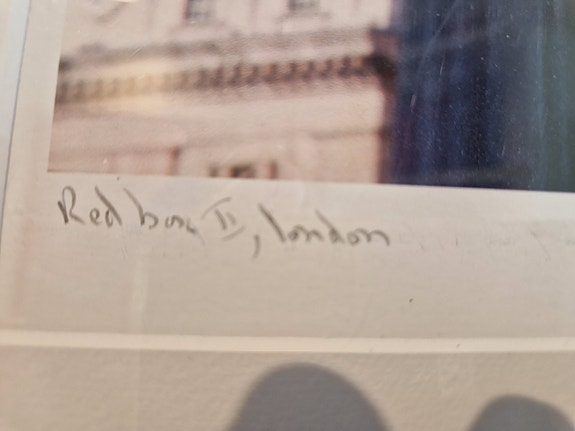 Red box II, london